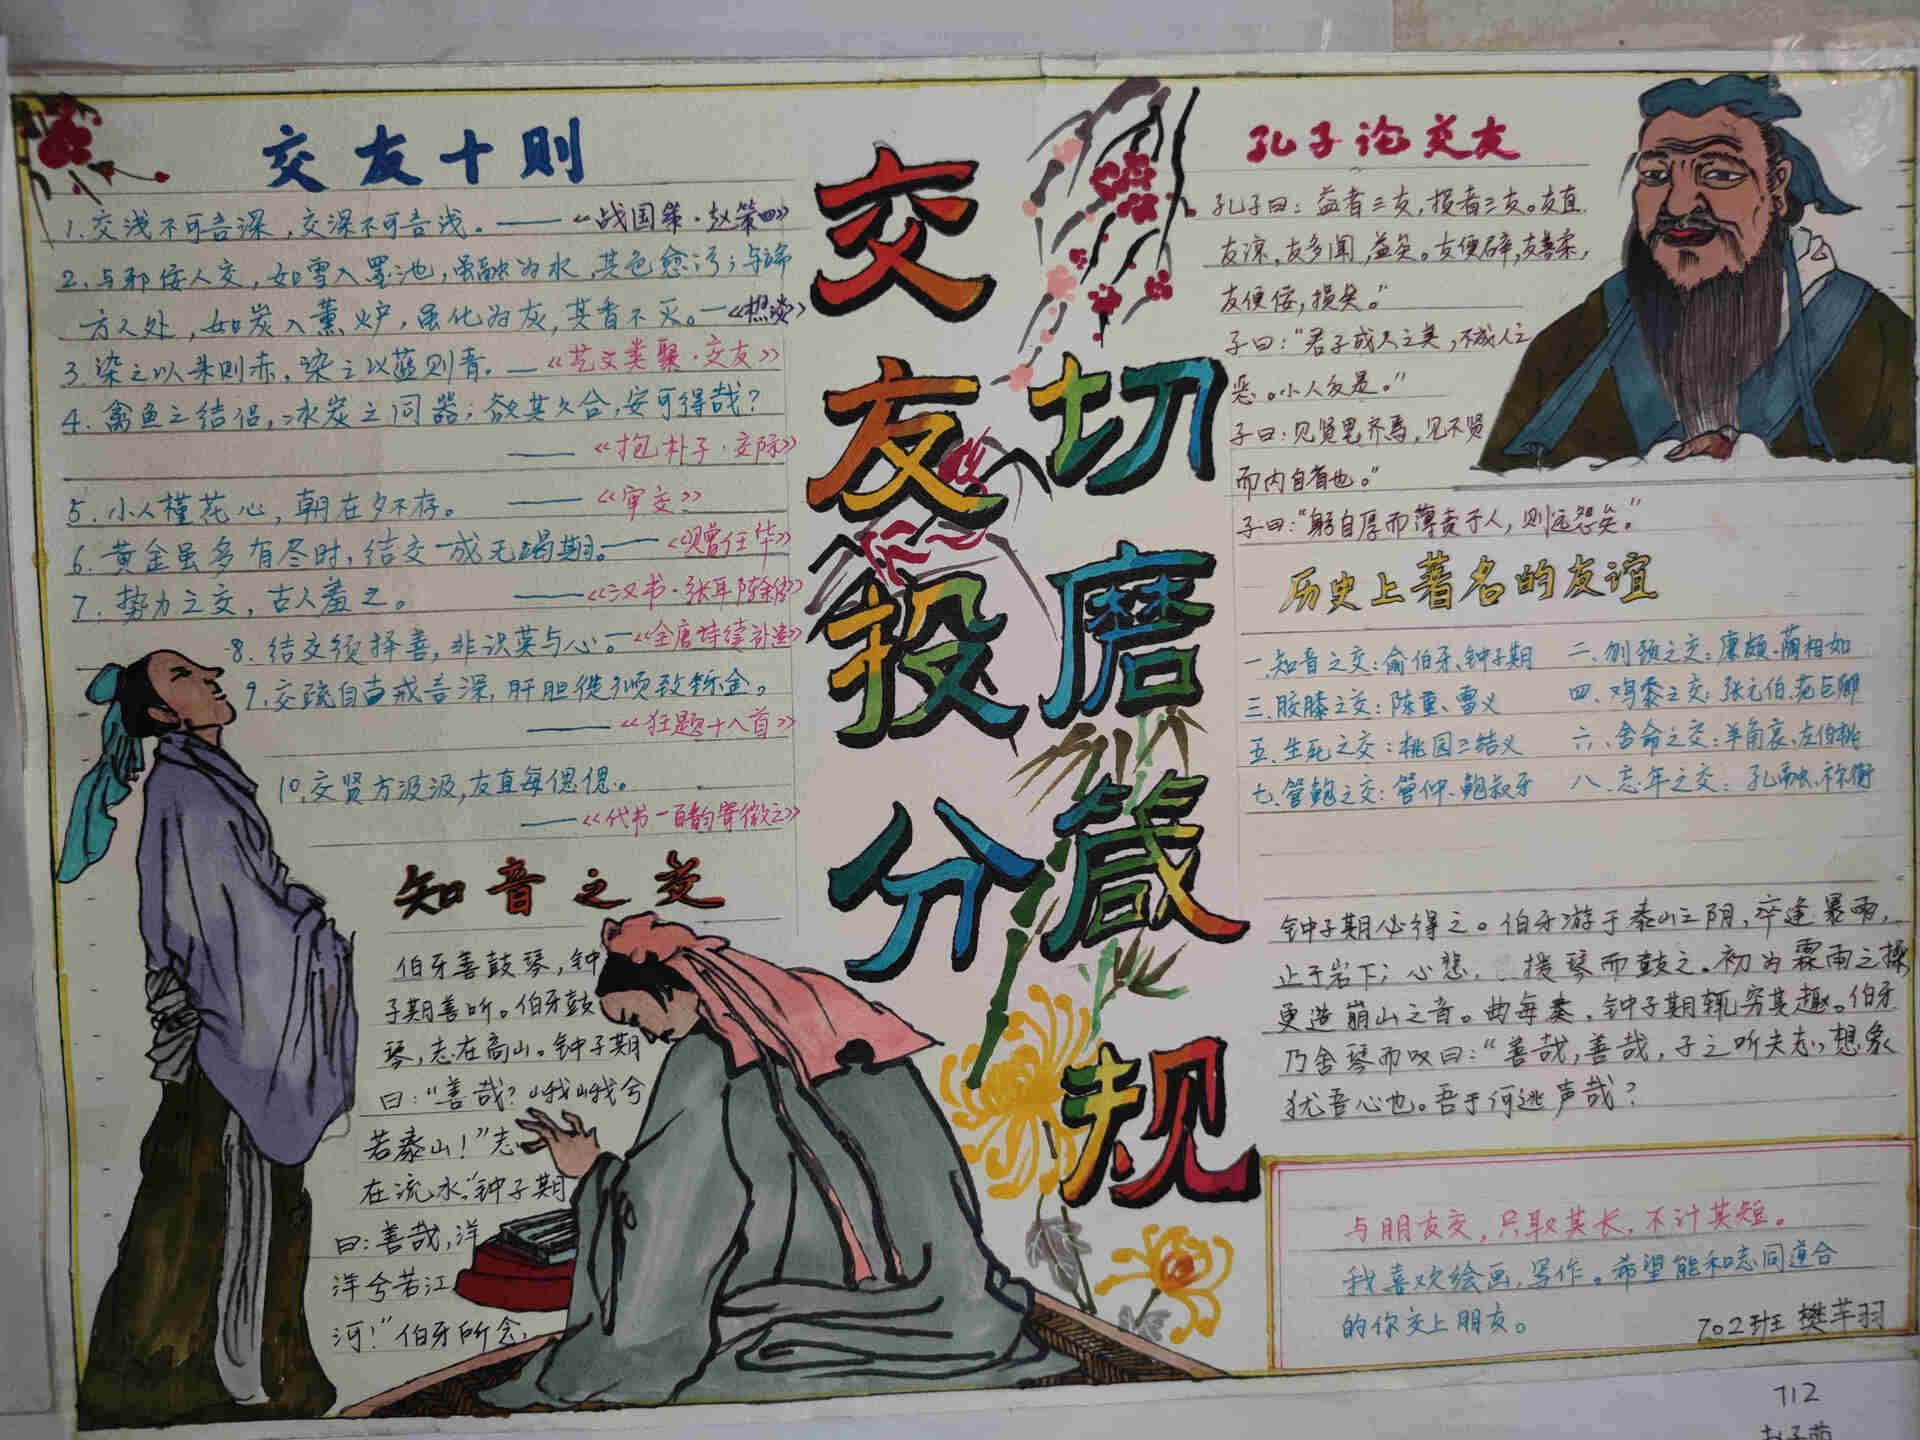 交友十则
1.交浅不可告深,交深不可告浅。——《战国策·赵策四》
2.与邪佞人交,如雪入墨池,虽融为水,其色愈污;与端
方人处,如炭入薰炉,虽化为灰,其香不灭。—
3.染之以朱则赤,染之以蓝则青.—《艺文类聚·交友》
4.禽鱼之结侣,冰炭之同器;欲其久合,安可得哉?
——《抱朴子·交际》
5.小人槿花心,朝在夕不存。——《审交》
6.黄金虽多有尽时,结交一成无竭期。——
7.势力之交,古人羞之。——《汉书·张耳陈余传》
8.结交须择善,非识莫与心。—《全唐诗续补遗》
9.交疏自古戒言深,肝胆徒倾致铄金。
——《狂题十八首》
10.交贤方汲汲,友直每偲偲。
——《代书一百韵寄微之》
知音之交
伯牙善鼓琴,钟
子期善听。伯牙鼓
琴,志在高山。钟子期
曰:“善哉?峨峨兮
若泰山!”志
在流水,钟子期
曰:善哉,洋
洋兮若江
河!”伯牙所念,
交友投分
切磨箴规
孔子论交友
孔子曰:益者三友,损者三友。友直
友谅,友多闻,益矣。友便辟,友善柔,
友便佞,损矣。”
子曰:“君子成人之美,不成人之
恶。小人反是。”
子曰:见贤思齐焉,见不贤
而内自省也。”
子曰:“躬自厚而薄责于人,则远怨矣。”
历史上著名的友谊
一.知音之交:俞伯牙、钟子期 二、刎颈之交:廉颇、蔺相如
三、胶膝之交:陈重、雷义 四、鸡黍之交:张元伯、范巨卿
五.生死之交:桃园三结义 六、舍命之交:羊角哀、左伯桃
七.管鲍之交:管仲、鲍叔牙 八、忘年之交:孔融、祢衡
钟子期必得之。伯牙游于泰山之阴,卒逢暴雨,
止于岩下;心悲,援琴而鼓之。初为霖雨之操
更造崩山之音。曲每奏,钟子期辄穷其趣。伯牙
乃舍琴而叹曰:“善哉,善哉,子之听夫志,想象
犹吾心也。吾于何逃声哉?
与朋友交,只取其长,不计其短。
我喜欢绘画,写作。希望能和志同道合
的你交上朋友。
702班 樊芊羽
712